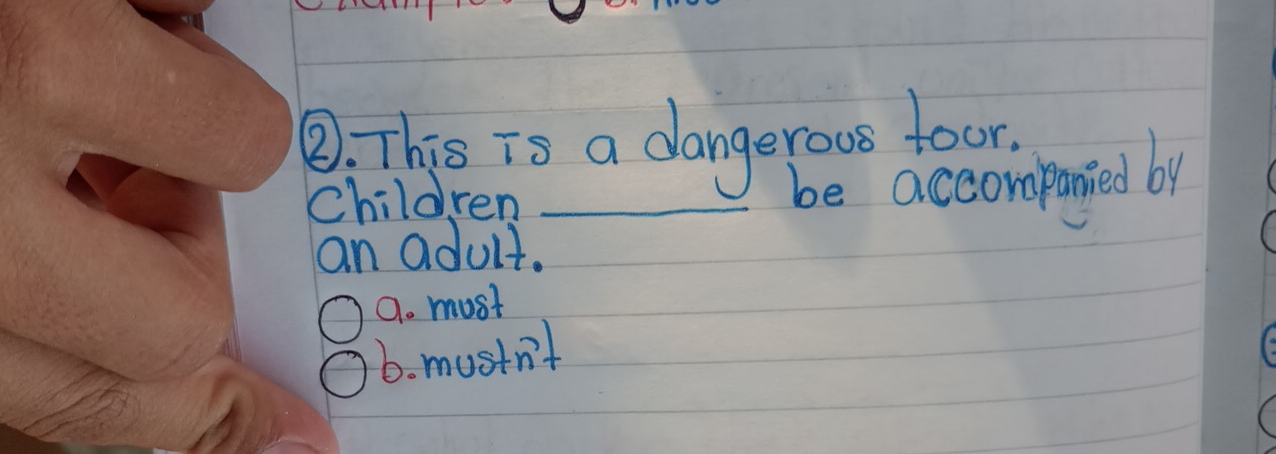 ②. This is a dangerous tour.
Children ________ be accompanied by
an adult.
a. must
b. mustn't